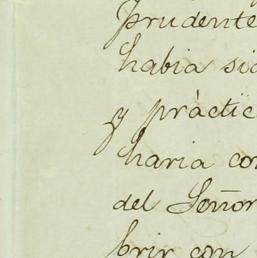 prudente
habia sid
y práctic
haria con
del Señor
brir con